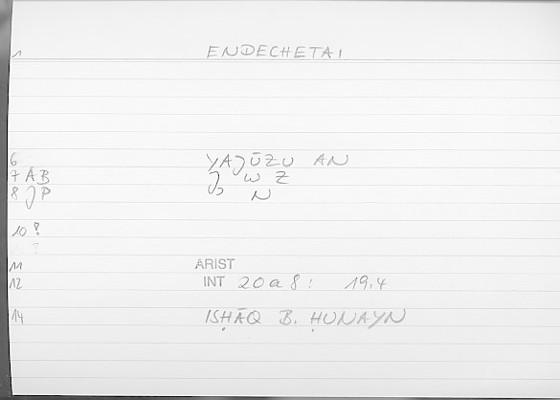 1 ENDECHETAI
6 YAJŪZU AN
7 AB J W Z
8 JP N
10 ?
?
11 ARIST
12 INT 20a8: 19.4
14 ISḤĀQ B. ḤUNAYN